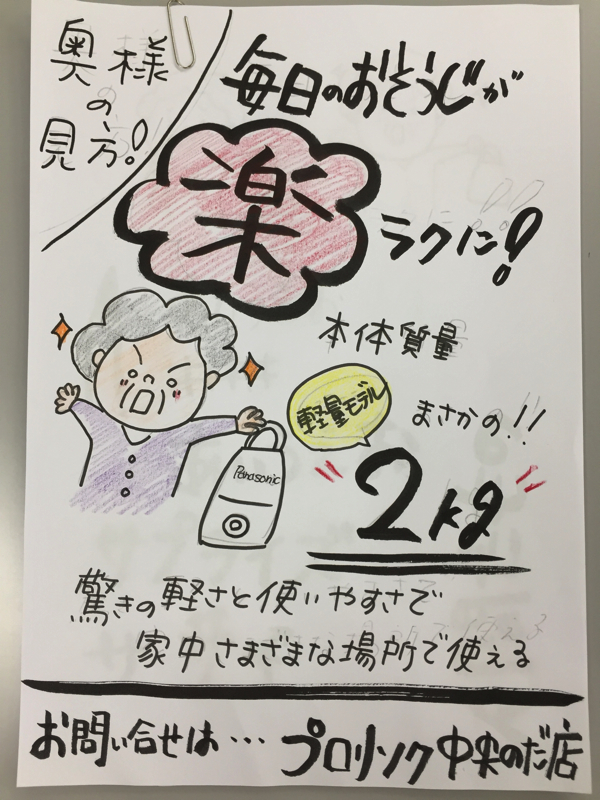 奥様
の
見方!
毎日のおそうじが
楽
ラクに!
本体質量
軽量モデル
まさかの!!
2kg
Panasonic
驚きの軽さと使いやすさで
家中さまざまな場所で使える
お問い合せは…プロリソク中央のだ店